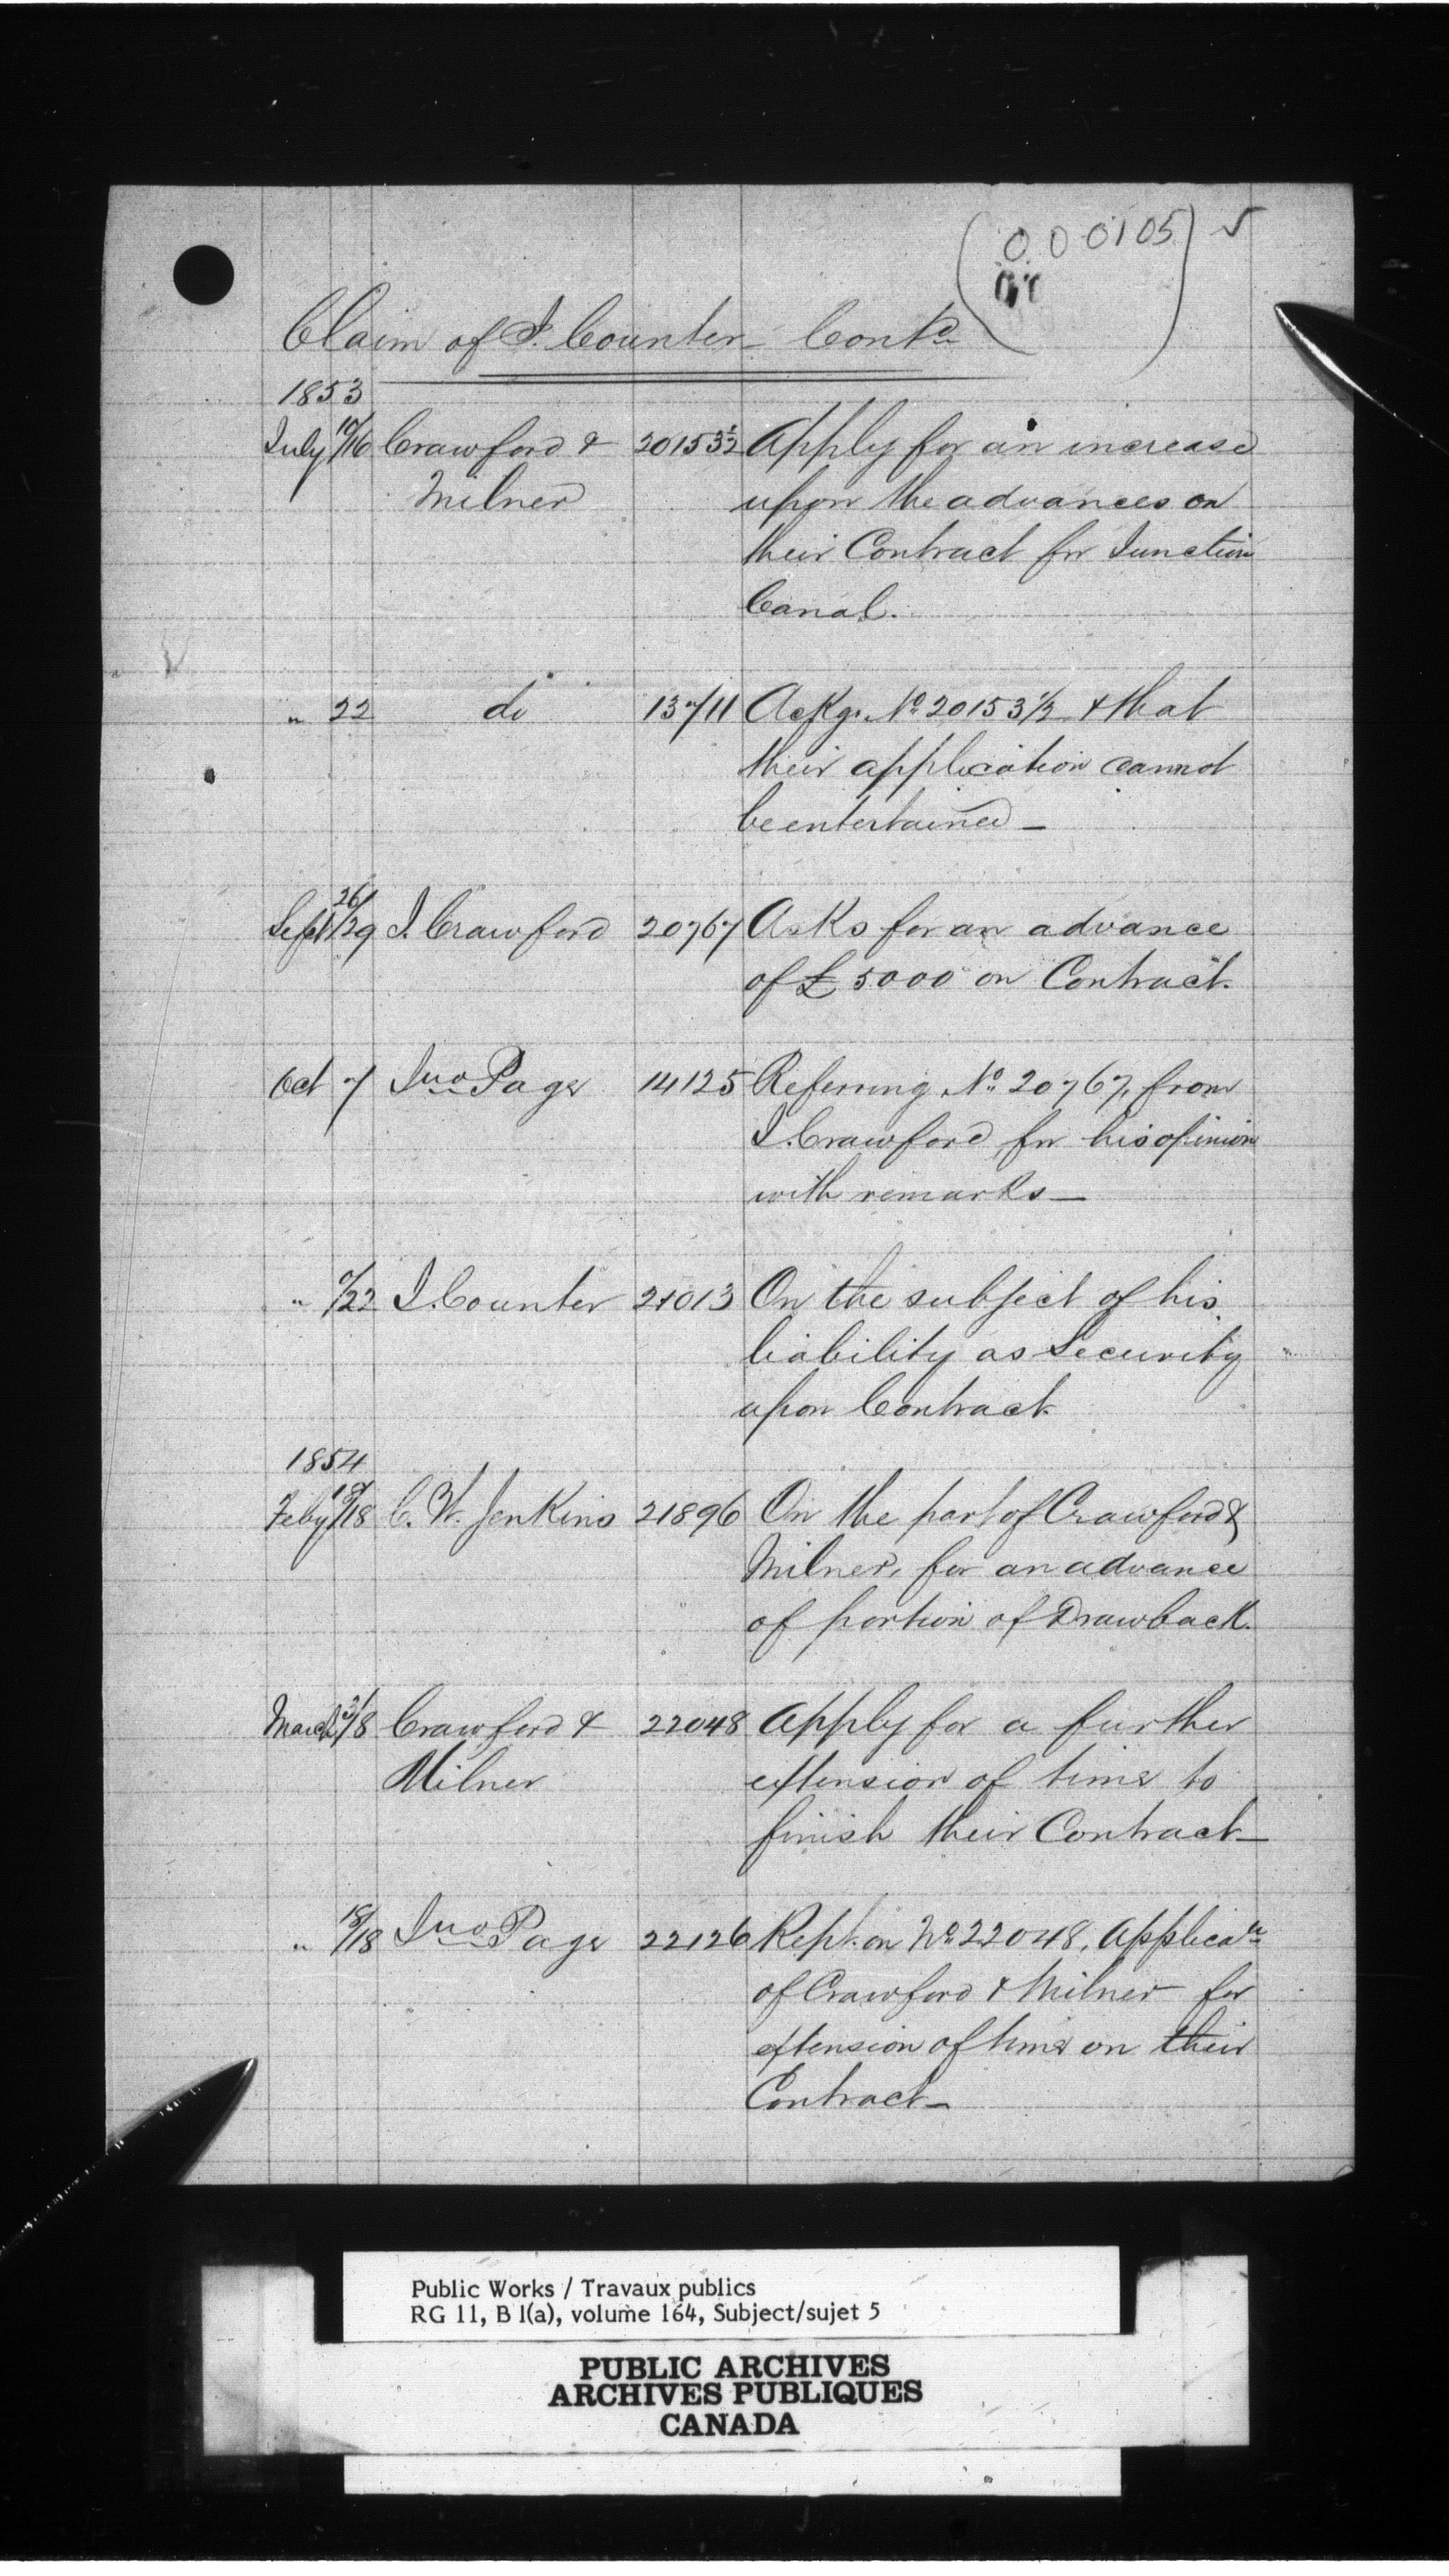 (000105) ✓
Claim of J. Counter Contd
1853
July 10/16 Crawford & 20153½ Apply for an increase
Milner upon the advances on
their Contract for Junction
Canal.
" 22 do 13711 Ackg. No 20153 1/2 & that
their application cannot
be entertained –
Sept 26/29 J. Crawford 20767 Asks for an advance
of £5000 on Contract.
Oct 7 Jno Page 14125 Referring No 20767, from
J. Crawford for his opinion
with remarks –
" /22 J. Counter 21013 On the subject of his
liability as Security
upon Contract.
1854
Feby /18 C. W. Jenkins 21896 On the part of Crawford &
Milner, for an advance
of portion of Drawback.
March /8 Crawford & 22048 Apply for a further
Milner extension of time to
finish their Contract –
" 18/18 Jno Page 22126 Rept. on No 22048, Applicatn
of Crawford & Milner for
extension of time on their
Contract –
Public Works / Travaux publics
RG 11, B 1(a), volume 164, Subject/sujet 5
PUBLIC ARCHIVES
ARCHIVES PUBLIQUES
CANADA